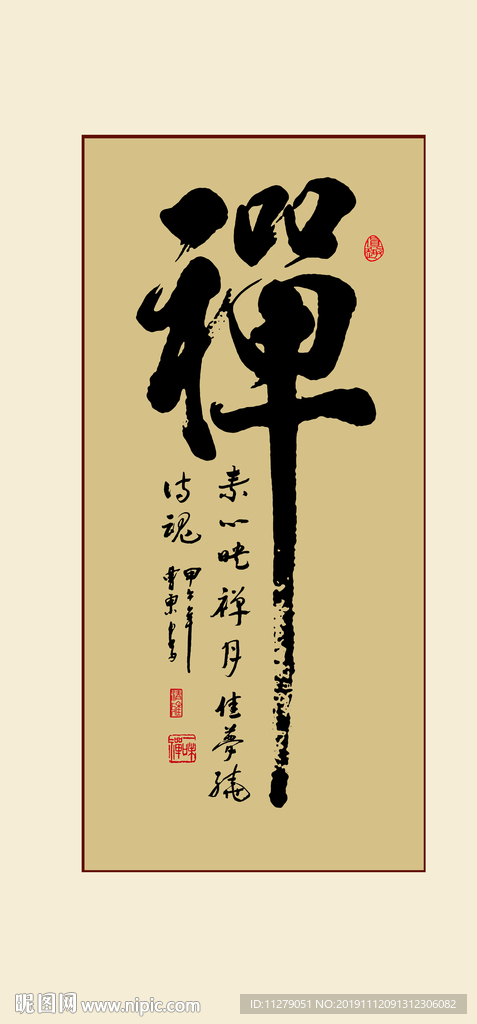 禪
素心映禅月佳夢繞
诗魂
甲午年
曹東書
一味禪
昵图网 www.nipic.com
ID:11279051 NO:20191112091312306082